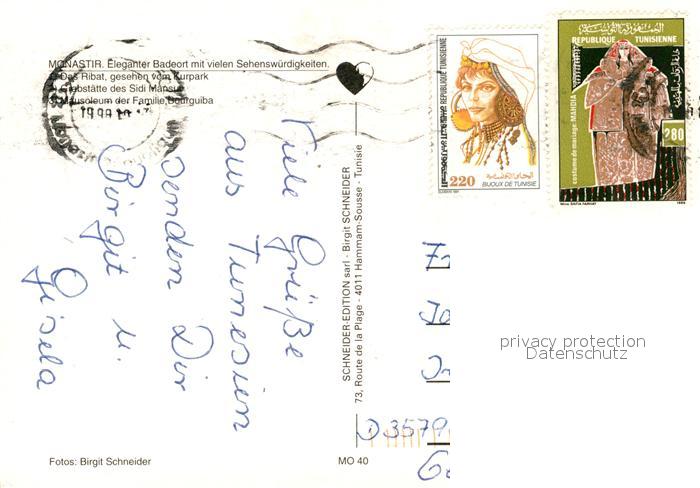 MONASTIR. Eleganter Badeort mit vielen Sehenswürdigkeiten.
1) Das Ribat, gesehen vom Kurpark
2) Grabstätte des Sidi Mansur
3) Mausoleum der Familie Bourguiba
Viele Grüße
aus Tunesien
senden Dir
Birgit u.
Gisela
SCHNEIDER-EDITION sarl - Birgit SCHNEIDER
73, Route de la Plage - 4011 Hammam-Sousse - Tunisie
REPUBLIQUE TUNISIENNE
220
BIJOUX DE TUNISIE
الجمهورية التونسية
REPUBLIQUE TUNISIENNE
costume de mariage MAHDIA
280
D 3579
privacy protection
Datenschutz
Fotos: Birgit Schneider
MO 40